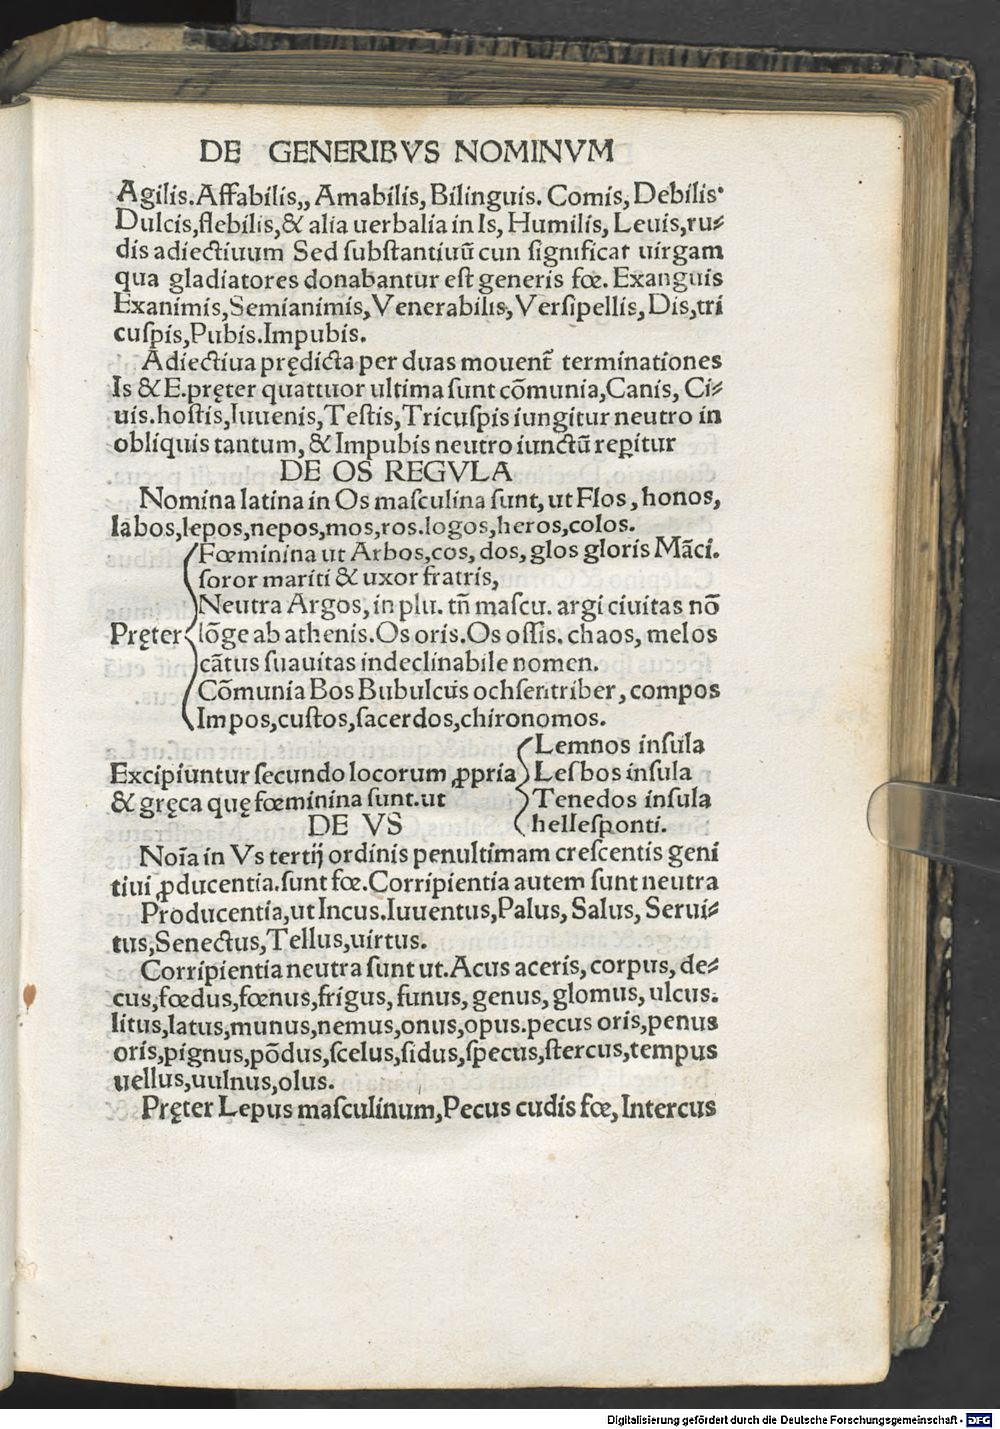 DE GENERIBVS NOMINVM
Agilis.Affabilis,, Amabilis, Bilinguis. Comis, Debilis.
Dulcis,flebilis,& alia uerbalia in Is, Humilis, Leuis,ru⸗
dis adiectiuum Sed substantiuū cun significat uirgam
qua gladiatores donabantur est generis fœ. Exanguis
Exanimis,Semianimis,Venerabilis,Versipellis,Dis,tri
cuspis,Pubis.Impubis.
Adiectiua prędicta per duas mouent̃ terminationes
Is & E.pręter quattuor ultima sunt cōmunia,Canis, Ci⸗
uis.hostis,Iuuenis,Testis,Tricuspis iungitur neutro in
obliquis tantum, & Impubis neutro iunctū repitur
DE OS REGVLA
Nomina latina in Os masculina sunt, ut Flos, honos,
labos,lepos,nepos,mos,ros.logos,heros,colos.
Fœminina ut Arbos,cos, dos, glos gloris Mãci.
soror mariti & uxor fratris,
Neutra Argos, in plu. tñ mascu. argi ciuitas nō
Pręter lōge ab athenis.Os oris.Os ossis. chaos, melos
cãtus suauitas indeclinabile nomen.
Cōmunia Bos Bubulcus ochsentriber, compos
Impos,custos,sacerdos,chironomos.
Lemnos insula
Excipiuntur secundo locorum ꝓpria Lesbos insula
& gręca quę fœminina sunt.ut Tenedos insula
DE VS hellesponti.
Noīa in Vs tertij ordinis penultimam crescentis geni
tiui ꝓducentia.sunt fœ.Corripientia autem sunt neutra
Producentia,ut Incus.Iuuentus,Palus, Salus, Serui⸗
tus,Senectus,Tellus,uirtus.
Corripientia neutra sunt ut.Acus aceris, corpus, de⸗
cus,fœdus,fœnus,frigus, funus, genus, glomus, ulcus.
litus,latus,munus,nemus,onus,opus.pecus oris,penus
oris,pignus,pōdus,scelus,sidus,specus,stercus,tempus
uellus,uulnus,olus.
Pręter Lepus masculinum,Pecus cudis fœ, Intercus
Digitalisierung gefördert durch die Deutsche Forschungsgemeinschaft - DFG